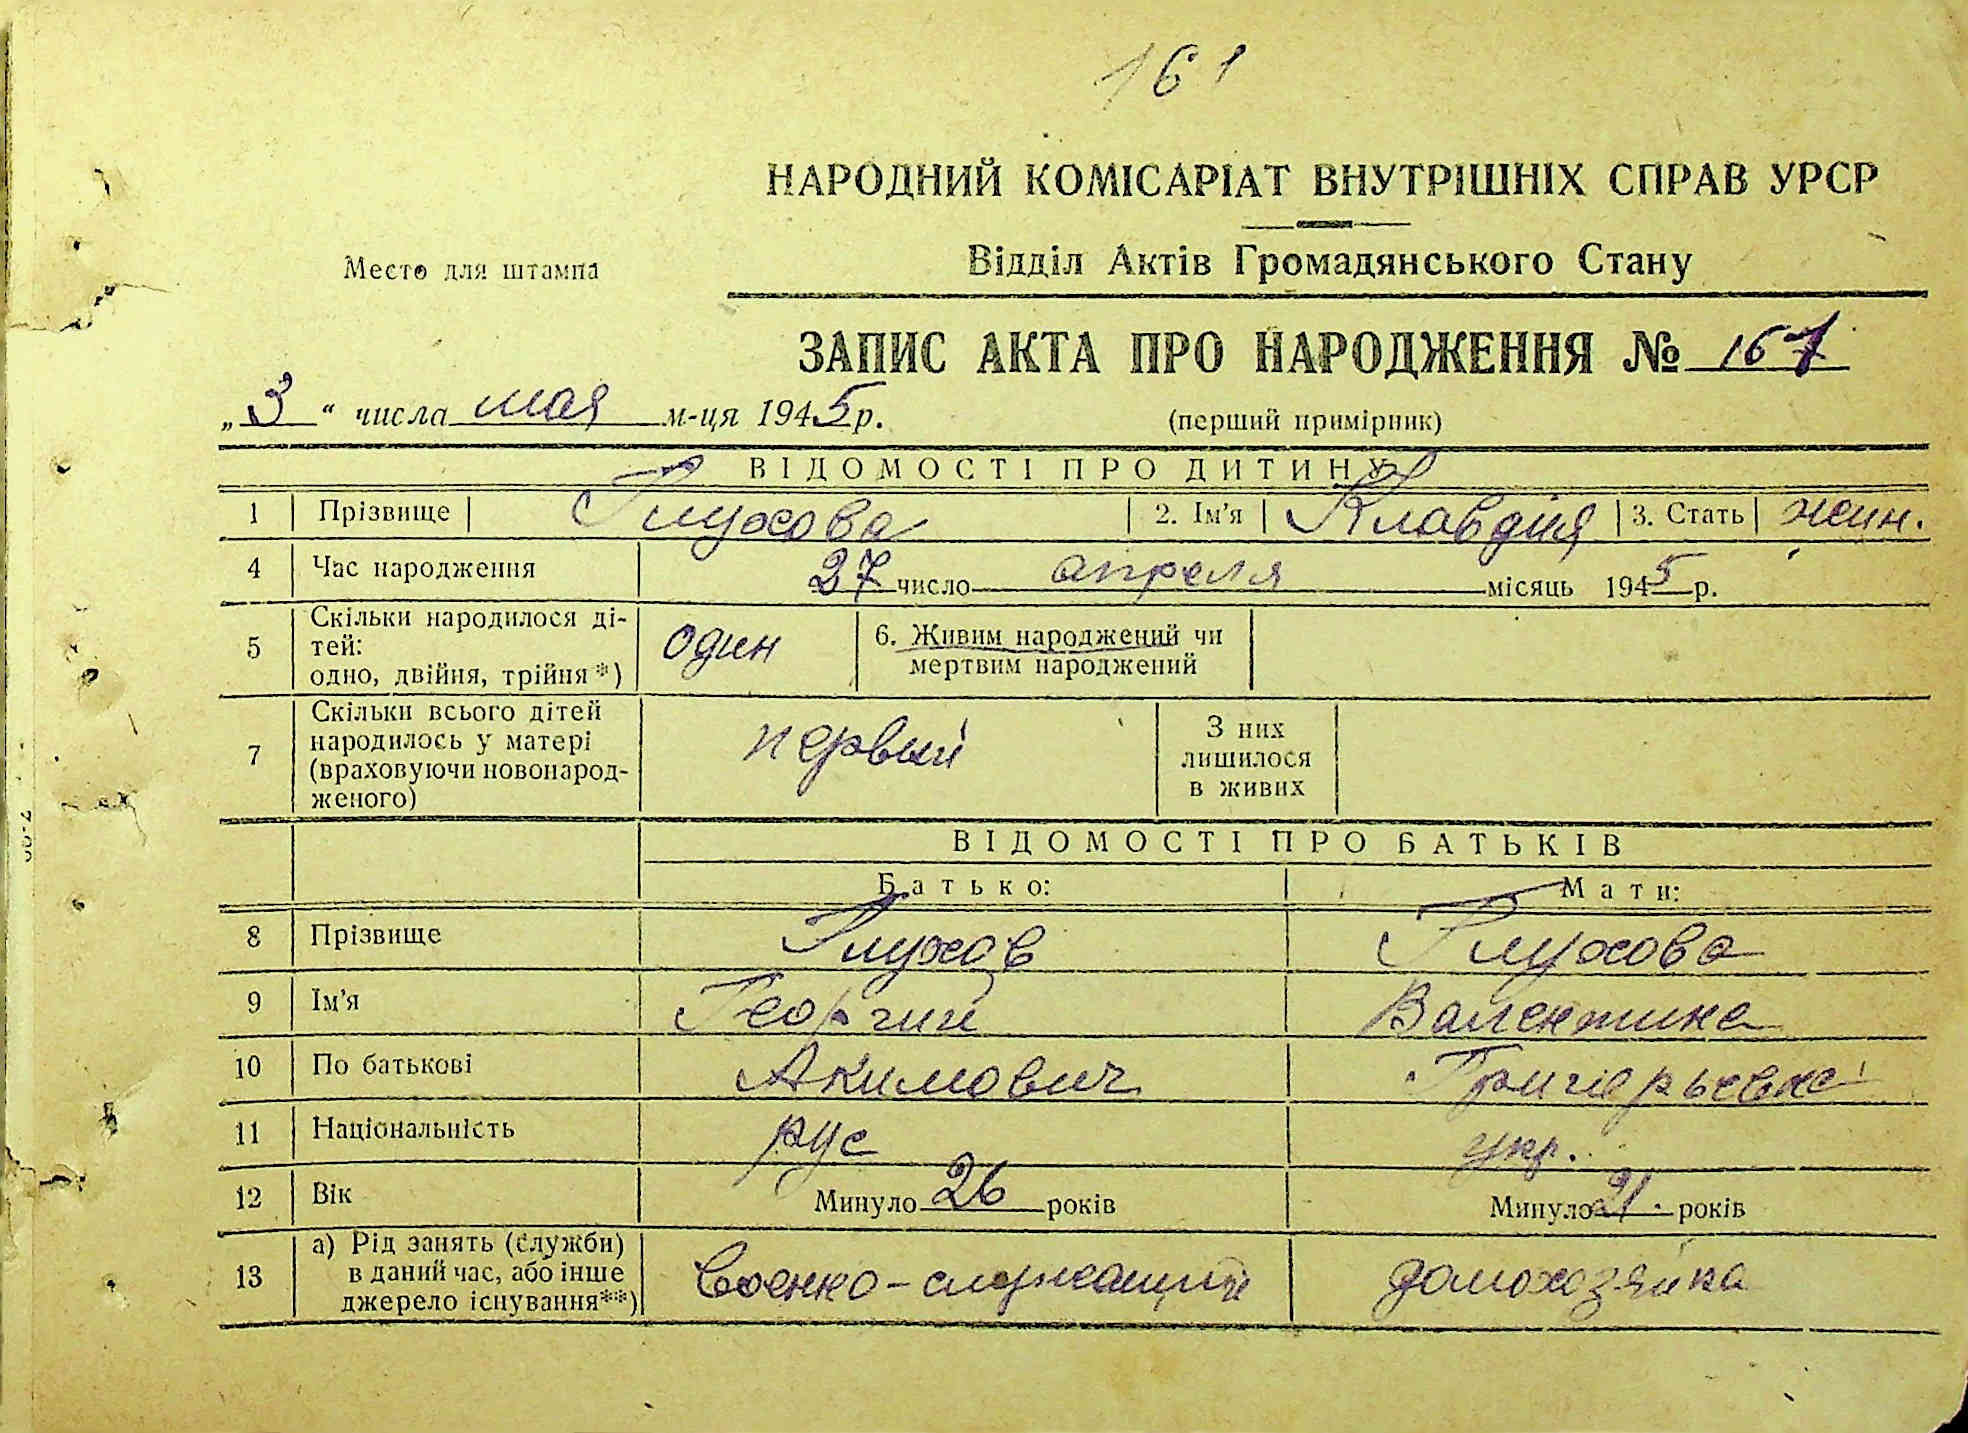 161
НАРОДНИЙ КОМІСАРІАТ ВНУТРІШНІХ СПРАВ УРСР
Место для штампа
Відділ Актів Громадянського Стану
ЗАПИС АКТА ПРО НАРОДЖЕННЯ № 167
„3“ числа мая м-ця 1945 р.
(перший примірник)
ВІДОМОСТІ ПРО ДИТИНУ
1 Прізвище Глухова 2. Ім'я Клавдия 3. Стать жин.
4 Час народження 27 число апреля місяць 1945 р.
5 Скільки народилося ді-
тей:
одно, двійня, трійня*) один 6. Живим народжений чи
мертвим народжений
7 Скільки всього дітей
народилось у матері
(враховуючи новонарод-
женого) первый З них
лишилося
в живих
ВІДОМОСТІ ПРО БАТЬКІВ
Батько: Мати:
8 Прізвище Глухов Глухова
9 Ім'я Георгий Валентина
10 По батькові Акимович Григорьевна
11 Національність рус укр.
12 Вік Минуло 26 років Минуло 21 років
13 а) Рід занять (служби)
в даний час, або інше
джерело існування**) военно-служащий домохозяйка